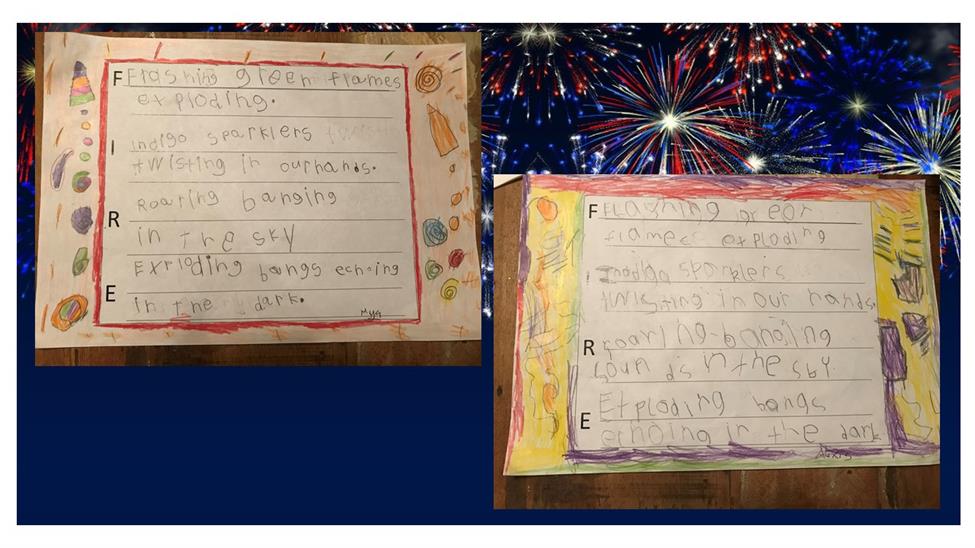 F Flashing green flames
exploding.
I Indigo sparklers twisti
twisting in our hands.
R Roaring banging
in the sky
E Exploding bangs echoing
in the dark.
Mya
F FLashing greon
flames exploding
I Indigo sparklers
twisting in our hands.
R roaring-banging
sounds in the sby.
E Exploding bangs
echoing in the dark